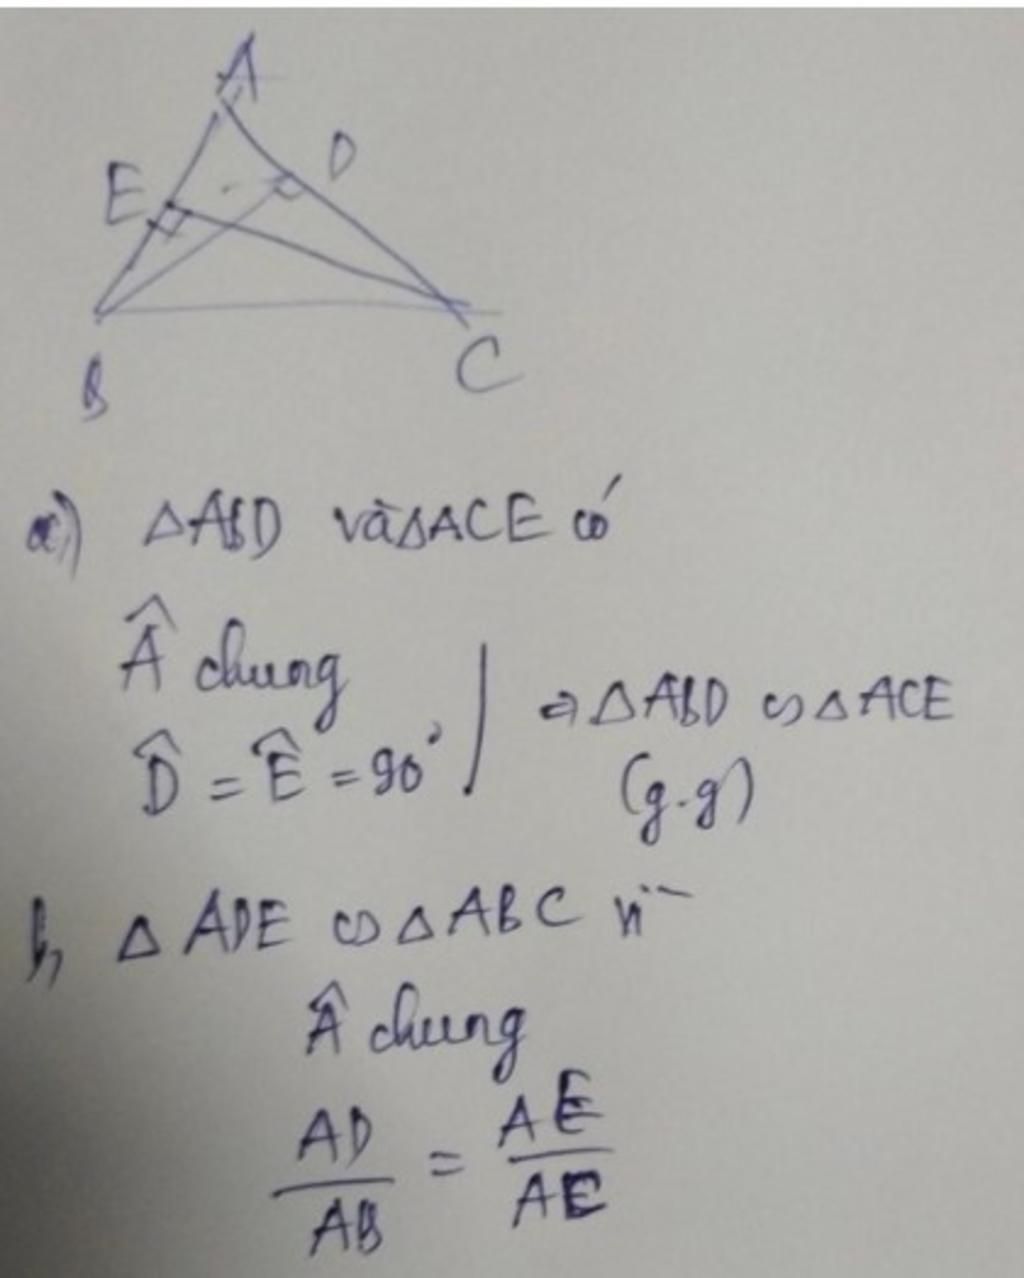 A
E
D
B
C
a) ΔABD và ΔACE có
Â chung
D̂ = Ê = 90° ⇒ ΔABD ∽ ΔACE
(g.g)
b, Δ ADE ∽ Δ ABC vì
Â chung
AD/AB = AE/AC